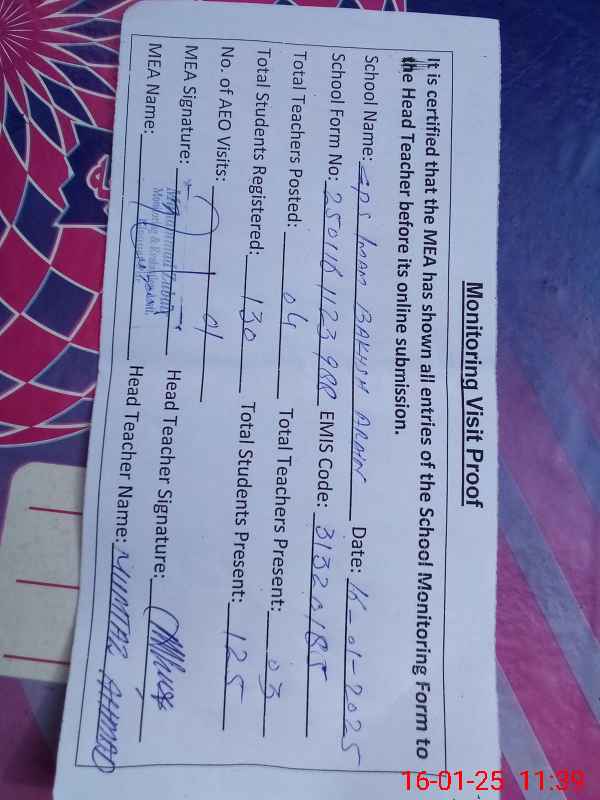 Monitoring Visit Proof
It is certified that the MEA has shown all entries of the School Monitoring Form to
the Head Teacher before its online submission.
School Name: GPS IMAM BAKHSH ARAIN Date: 16-01-2025
School Form No: EMIS Code: 31320185
Total Teachers Posted: 04 Total Teachers Present: 03
Total Students Registered: 130 Total Students Present: 125
No. of AEO Visits: 01
MEA Signature: Head Teacher Signature:
MEA Name: Head Teacher Name: MUMTAZ AHMAD
16-01-25 11:39